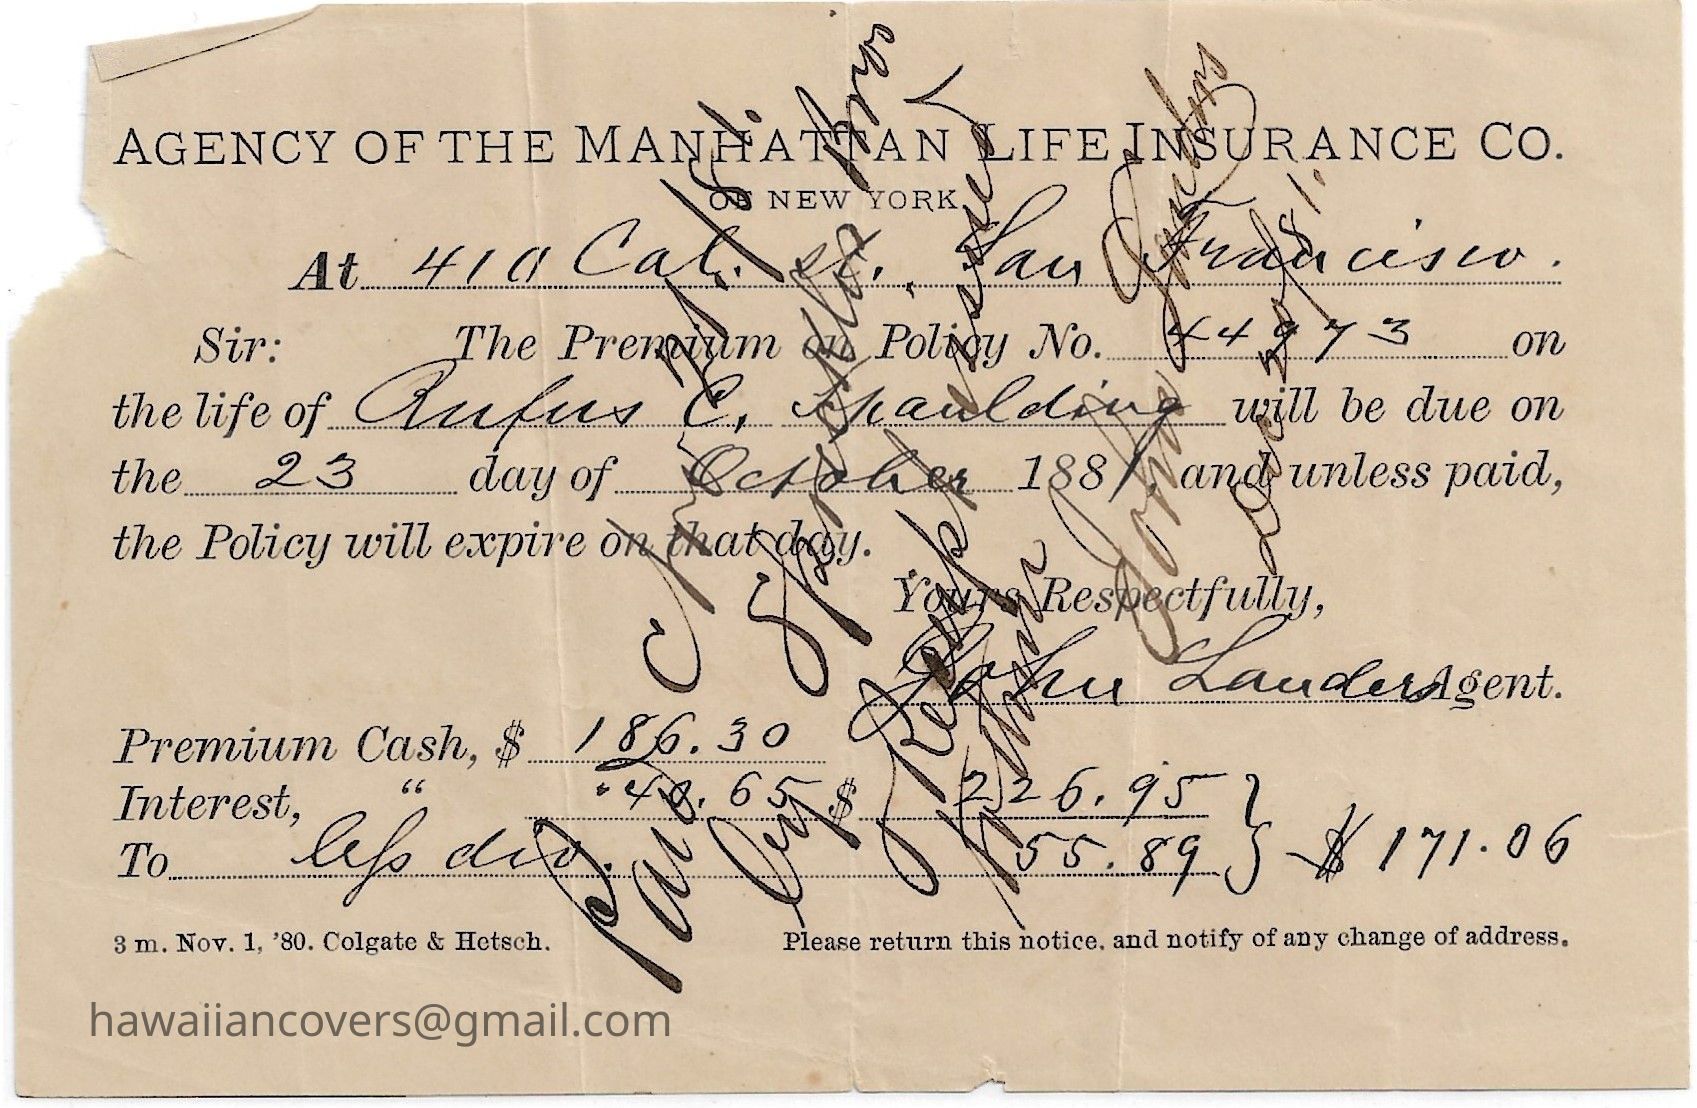 AGENCY OF THE MANHATTAN LIFE INSURANCE CO.
OF NEW YORK.
At 410 Cal. St., San Francisco.
Sir: The Premium on Policy No. 44973 on
the life of Rufus C. Spaulding will be due on
the 23 day of October 1881, and unless paid,
the Policy will expire on that day.
Yours Respectfully,
John Landers Agent.
Premium Cash, $ 186.30
Interest, “ " 40.65 $ 226.95 }
To less div. 55.89 } $ 171.06
3 m. Nov. 1, '80. Colgate & Hetsch.
Please return this notice, and notify of any change of address.
Paid
John Landers
hawaiiancovers@gmail.com